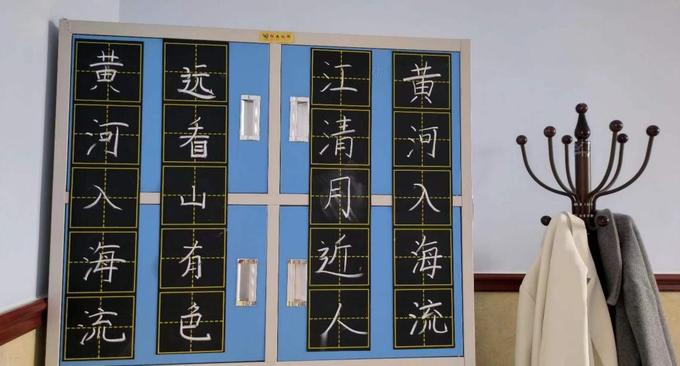 黄河入海流
远看山有色
江清月近人
黄河入海流